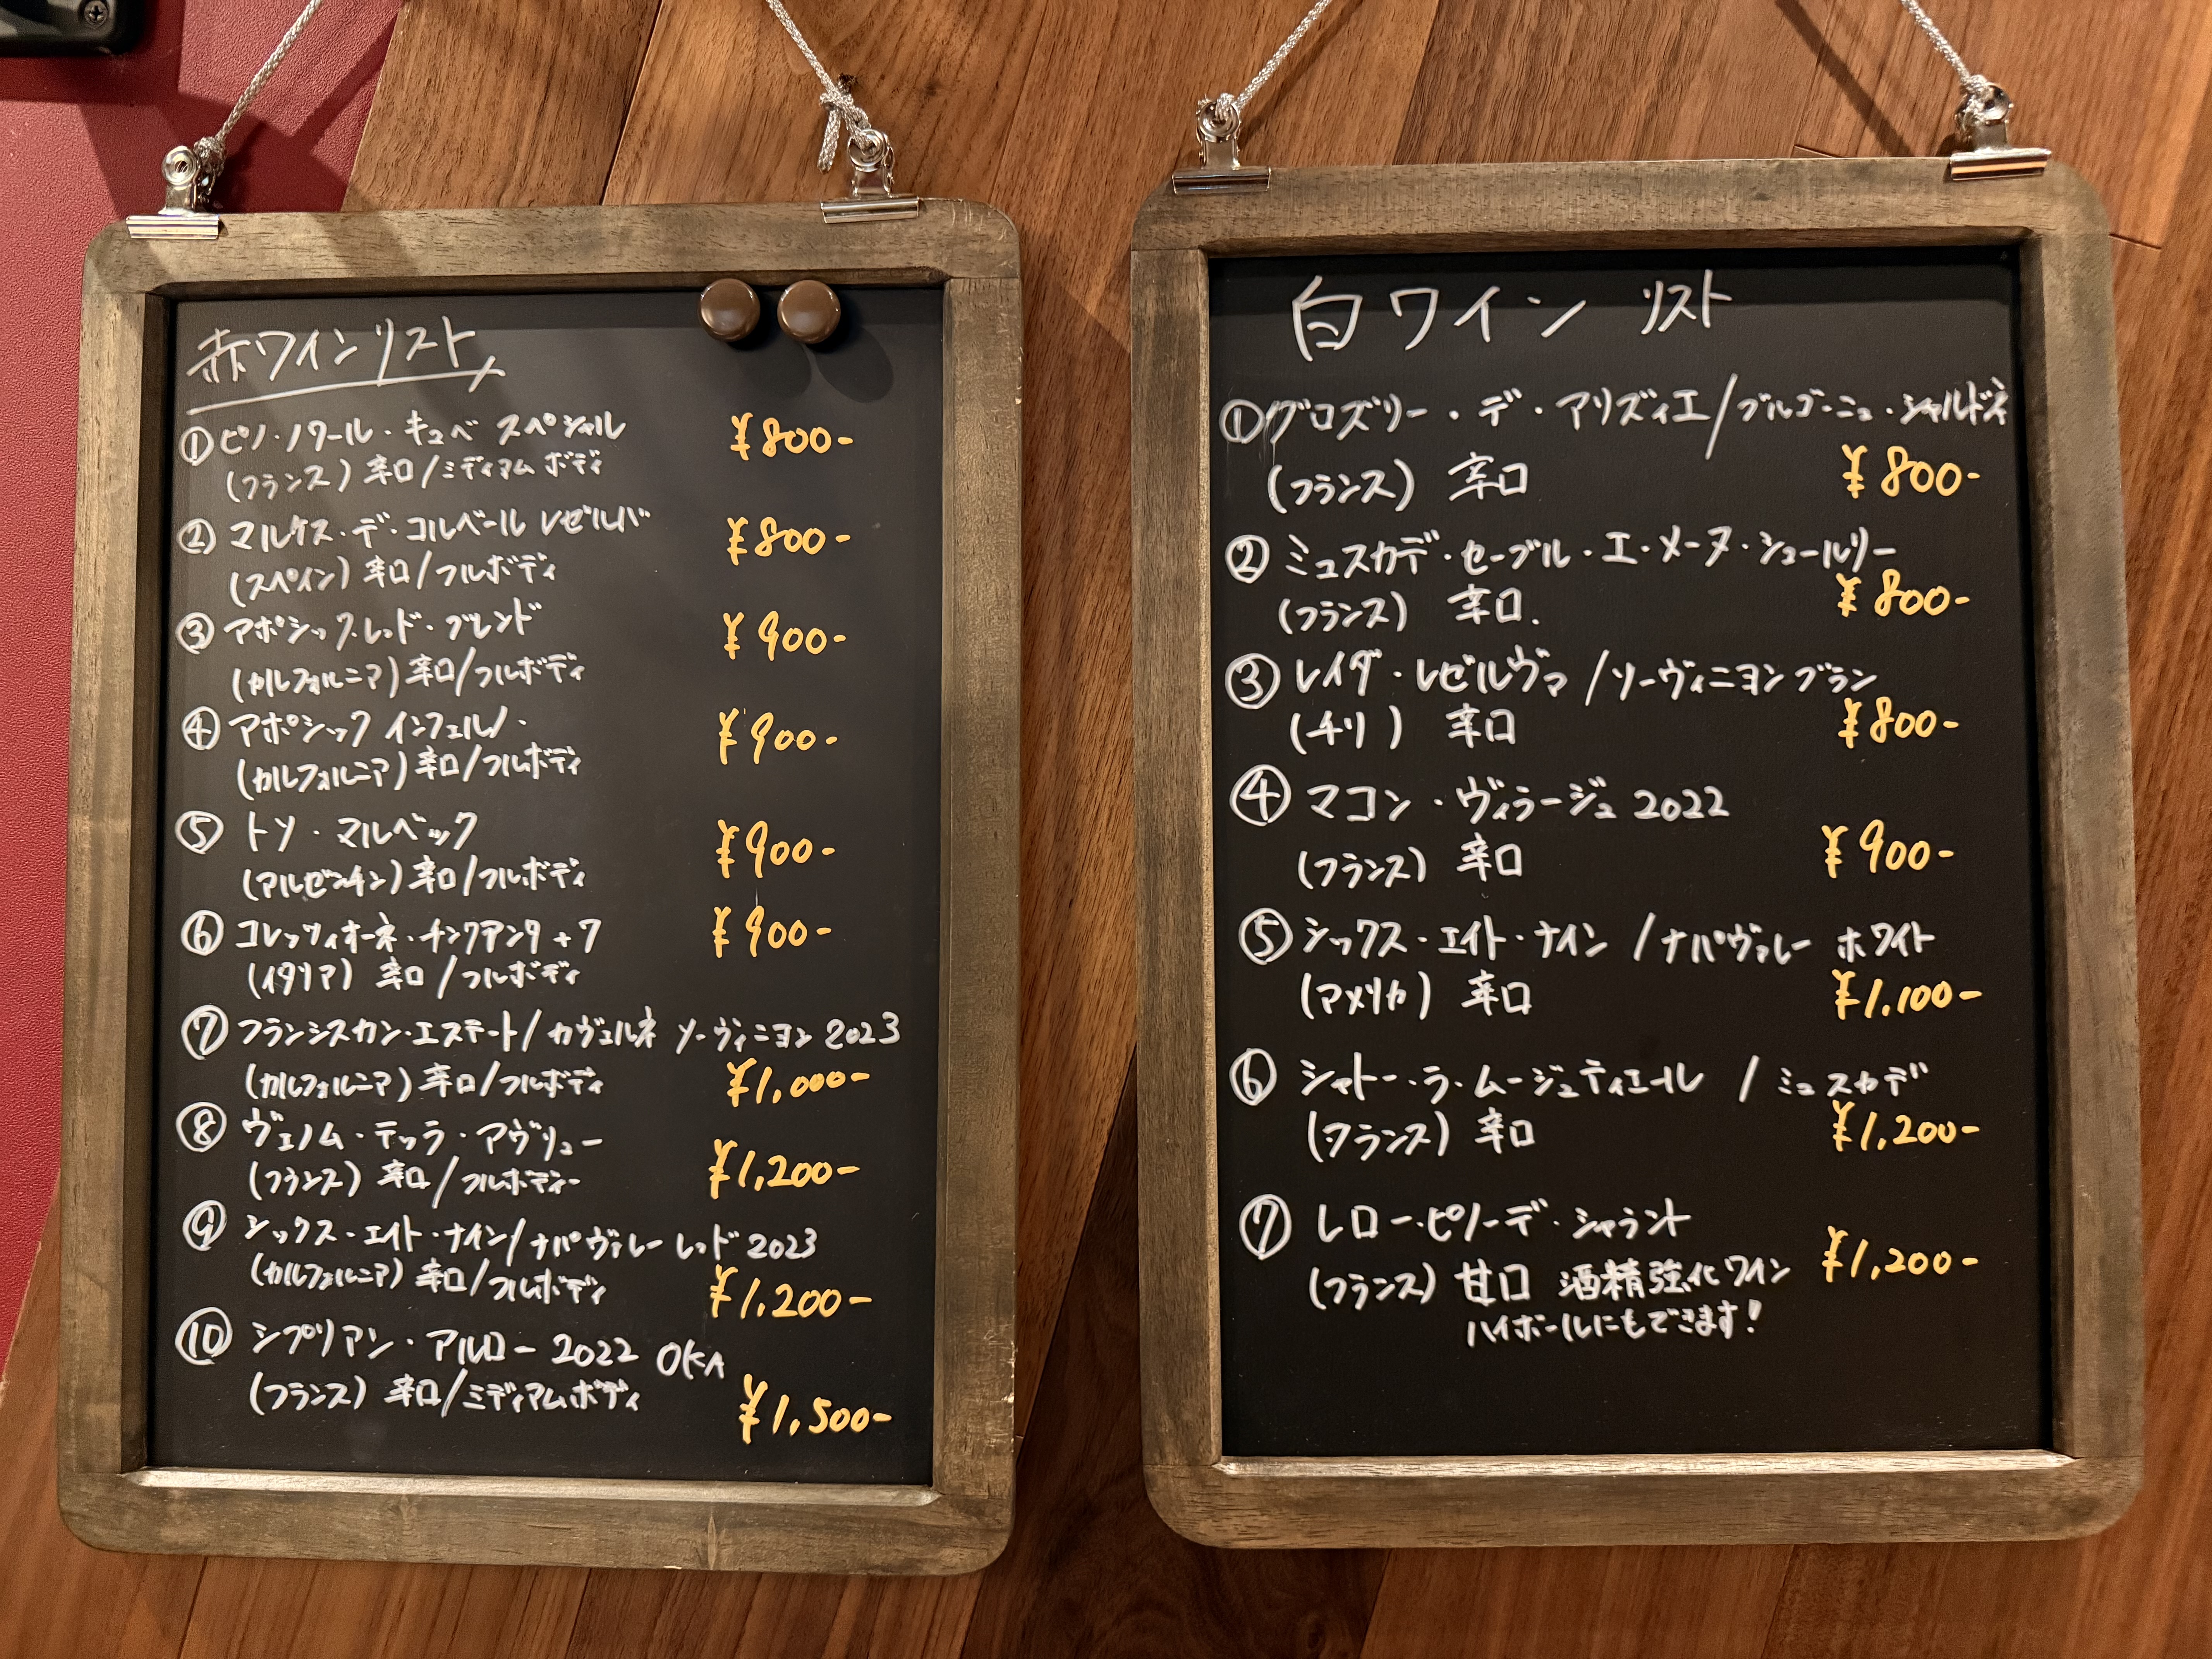 赤ワインリスト
①ピノ・ノワール・キュベ スペシャル ¥800-
(フランス) 辛口/ミディアム ボディ
② マルケス・デ・コルベール レゼルバ ¥800-
(スペイン) 辛口/フルボディ
③ アポシック・レッド・ブレンド ¥900-
(カルフォルニア) 辛口/フルボディ
④ アポシック インフェルノ・ ¥900-
(カルフォルニア) 辛口/フルボディ
⑤ トソ・マルベック ¥900-
(アルゼンチン) 辛口/フルボディ
⑥ コレッツィオーネ・チンクアンタ+7 ¥900-
(イタリア) 辛口/フルボディ
⑦ フランシスカン・エステート/カヴェルネ ソーヴィニヨン 2023
(カルフォルニア) 辛口/フルボディ ¥1,000-
⑧ ヴェノム・テッラ・アヴリュー
(フランス) 辛口/フルボディー ¥1,200-
⑨ シックス・エイト・ナイン/ナパ ヴァレー レッド 2023
(カルフォルニア) 辛口/フルボディ ¥1.200-
⑩ シプリアン・アルロー 2022 OKA
(フランス) 辛口/ミディアムボディ ¥1,500-
白ワイン リスト
①グロズリー・デ・アリズィエ/ブルゴーニュ・シャルドネ
(フランス) 辛口 ¥800-
② ミュスカデ・セーブル・エ・メーヌ・シュールリー
(フランス) 辛口. ¥800-
③ レイダ・レゼルヴァ/ソーヴィニヨン ブラン
(チリ) 辛口 ¥800-
④ マコン・ヴィラージュ 2022
(フランス) 辛口 ¥900-
⑤ シックス・エイト・ナイン/ナパヴァレー ホワイト
(アメリカ) 辛口 ¥1.100-
⑥ シャトー・ラ・ムージュティエール / ミュスカデ
(フランス) 辛口 ¥1.200-
⑦ レロー・ピノーデ・シャラント
(フランス) 甘口 酒精強化ワイン ¥1,200-
ハイボールにもできます!